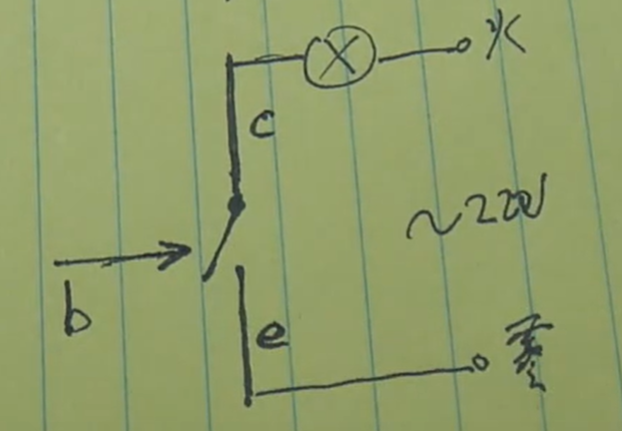 火
c
~220V
b
e
零